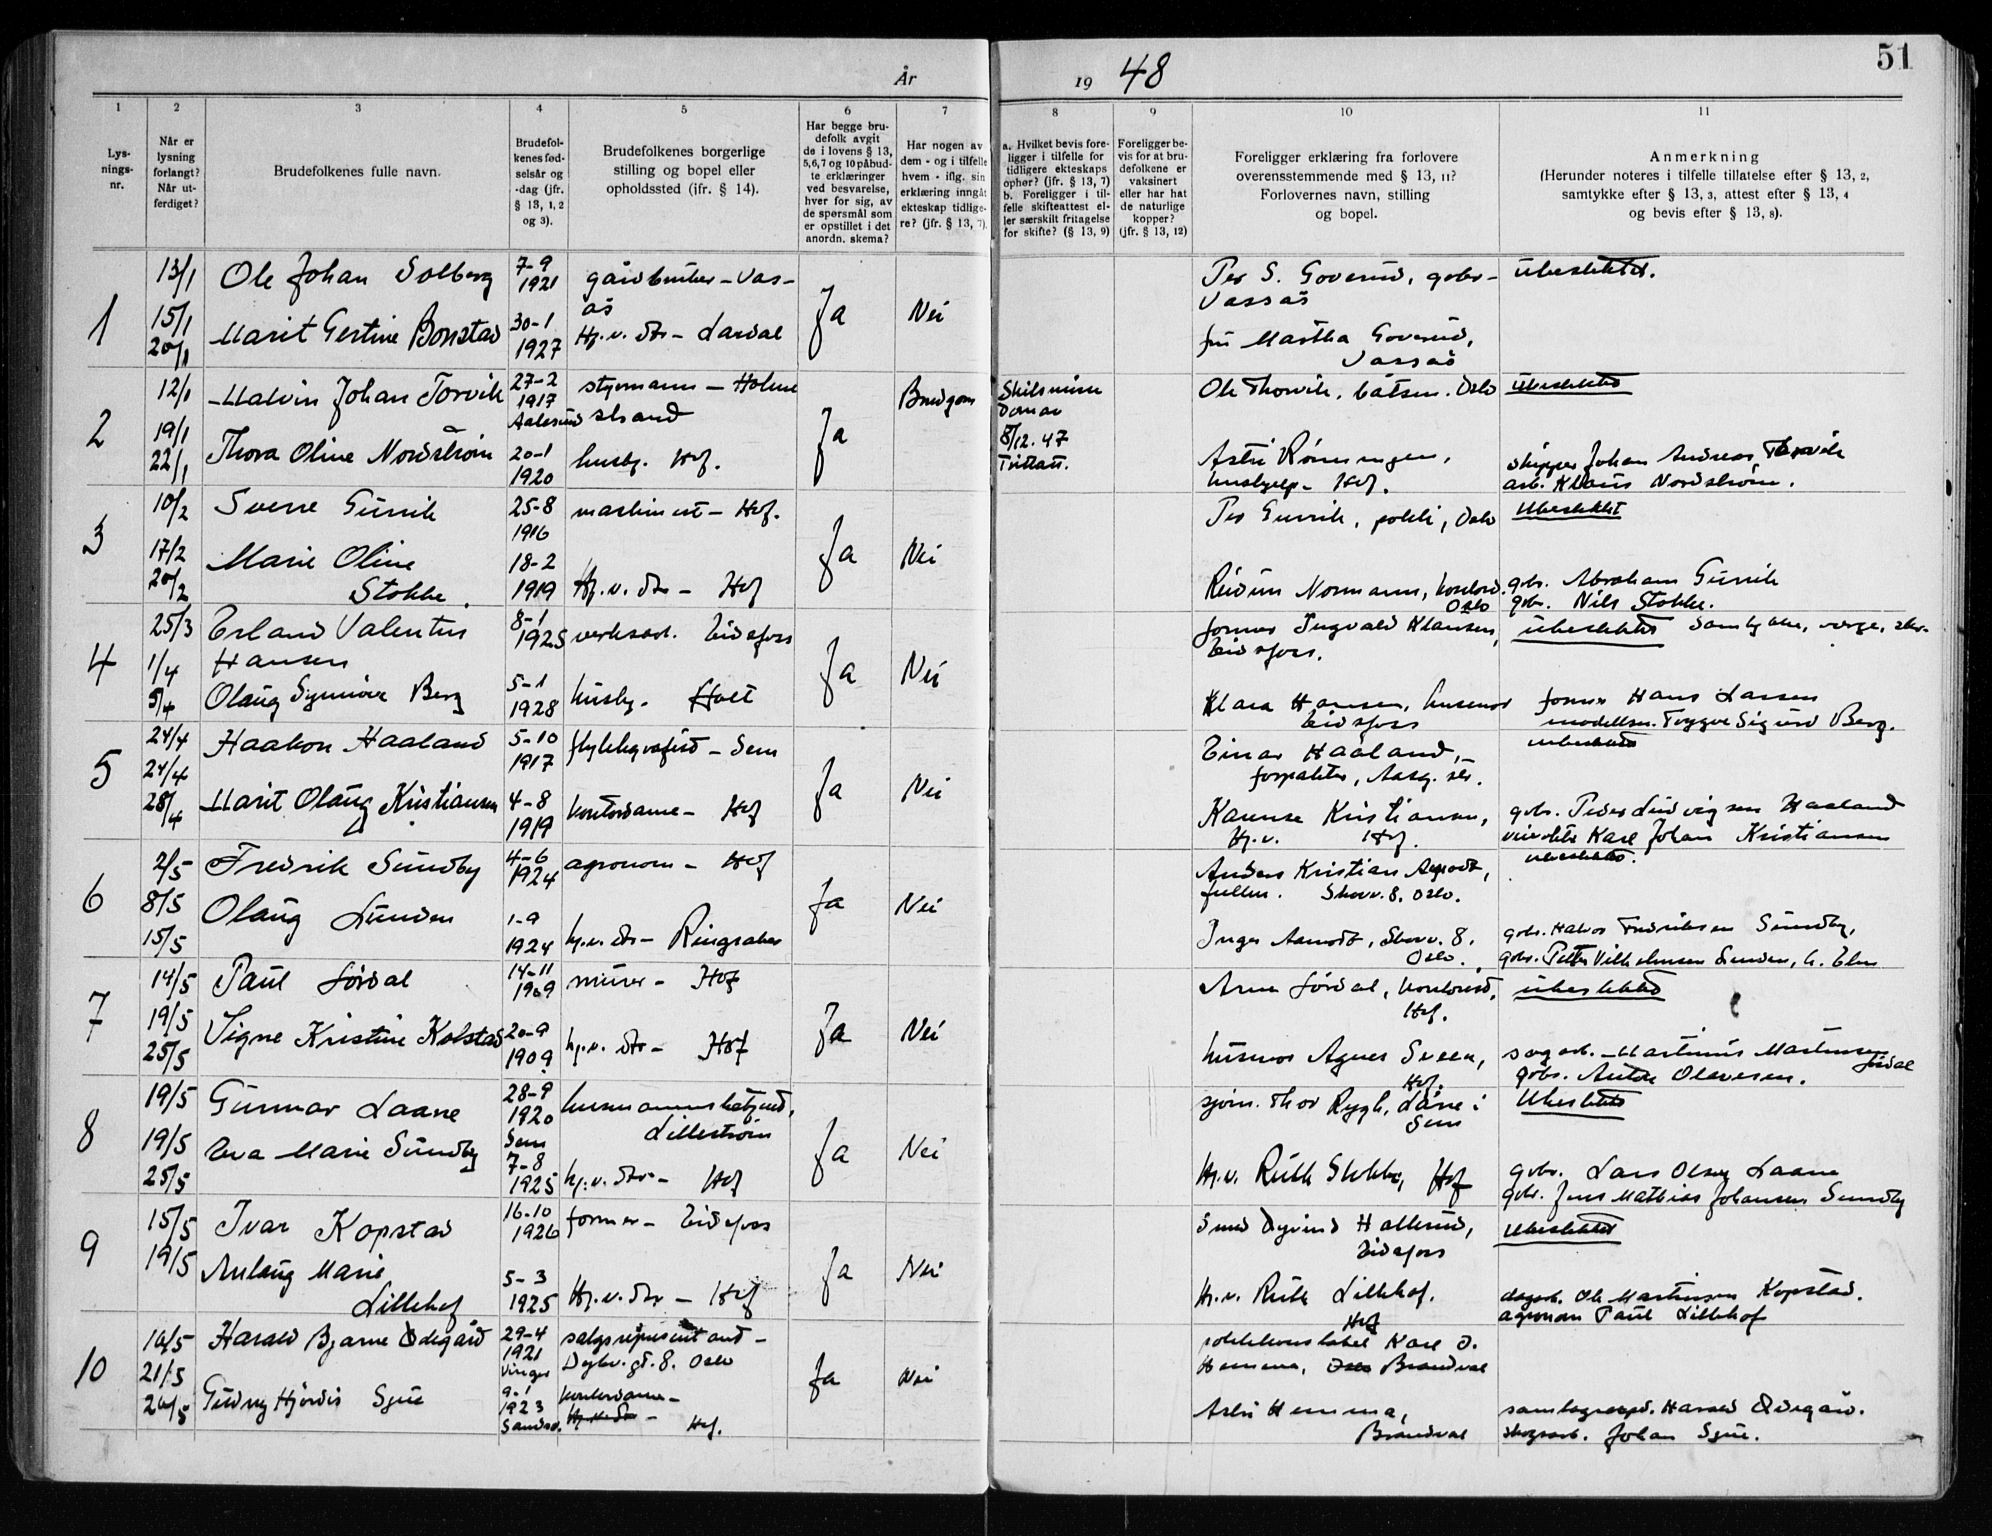 År
19 48
51
1
2
3
4
5
6
7
8
9
10
11
Lys-
nings-
nr.
Når er
lysning
forlangt?
Når ut-
ferdiget?
Brudefolkenes fulle navn.
Brudefol-
kenes fød-
selsår og
-dag (jfr.
§ 13, 1, 2
og 3).
Brudefolkenes borgerlige
stilling og bopel eller
opholdssted (ifr. § 14).
Har begge bru-
defolk avgit
de i lovens § 13,
5,6,7 og 10 påbud-
te erklæringer
ved besvarelse,
hver for sig, av
de spørsmål som
er opstillet i det
anordn. skema?
Har nogen av
dem - og i tilfelle
hvem - iflg. sin
erklæring inngåt
ekteskap tidlige-
re? (jfr. § 13, 7).
a. Hvilket bevis fore-
ligger i tilfelle for
tidligere ekteskaps
ophør? (jfr. § 13, 7)
b. Foreligger i til-
felle skifteattest el-
ler særskilt fritagelse
for skifte? (§ 13, 9)
Foreligger be-
vis for at bru-
defolkene er
vaksinert
eller har hat
de naturlige
kopper?
(jfr. § 13, 12)
Foreligger erklæring fra forlovere
overensstemmende med § 13, 11?
Forlovernes navn, stilling
og bopel.
Anmerkning
(Herunder noteres i tilfelle tillatelse efter § 13, 2,
samtykke efter § 13, 3, attest efter § 13, 4
og bevis efter § 13, 8).
1
13/1
15/1
20/1
Ole Johan Solberg
Marit Gertine Bonstad
7-9
1921
30-1
1927
gårdbruker - Vas-
ås
Hj.v. dtr - Lardal
Ja
Nei
Per S. Goverud, gbr -
Vassås
fru Martha Goverud,
Vassås
Ubeslektet.
2
12/1
19/1
22/1
Malvin Johan Torvik
Thora Oline Nordstrøm
27-2
1917
Aalesund
20-1
1920
styrmann - Holme
strand
husbg. Hof.
Ja
Brudgom
Skilsmisse
8/12. 47
Ole Thorvik, båtsm. Oslo
Astri Rønningen,
hushjelp - Hof.
Ubeslektet
skipper Johan Andreas Thorvik
arb. Klaus Nordstrøm.
3
10/2
17/2
20/2
Sverre Gurrik
Marie Oline
Stokke.
25-8
1916
18-2
1919
maskinist - Hof.
Hj.v. dtr - Hof
Ja
Nei
Per Gurrik, politi, Oslo
Reidun Normann, kontord.
Oslo
Ubeslektet
gbr. Abraham Gurrik
gbr. Nils Stokke.
4
25/3
1/4
5/4
Erland Valentin
Hansen
Olaug Synnøve Berg
8-1
1925
5-1
1928
verksarb. Eidsfoss
husbg. Holt
Ja
Nei
former Ingvald Klausen,
Eidsfoss.
Klara Hansen, husmor
Eidsfoss
ubeslektet
former Hans Larsen
modellsn. Trygve Sigurd Berg.
5
24/4
24/4
28/4
Haakon Haaland
Marit Olaug Kristiansen
5-10
1917
4-8
1919
- Sem
kontordame - Hof
Ja
Nei
Einar Haaland, -
forpakter,
Karense Kristiansen,
Hj.v. Hof.
ubeslektet
gbr. Peder Ludvigsen Haaland
Karl Johan Kristiansen
6
2/5
8/5
15/5
Fredrik Sundby
Olaug Lunden
4-6
1924
1-9
1924
agronom - Hof
hj.v. dtr - Ringsaker
Ja
Nei
Anders Kristian Aamodt,
fullm. Skovv. 8. Oslo.
Inger Aamodt, Skovv. 8.
Oslo.
ubeslektet.
gbr. Halvor Fredriksen Sundby,
gbr. Petter Vilhelmsen Lunden,
7
14/5
19/5
25/5
Paul Jordal
Signe Kristine Kolstad
14-11
1909
20-9
1909
murer - Hof
hj.v. dtr - Hof
Ja
Nei
Arne Jordal,
Hof.
husmor Agnes Sveen,
Hof.
ubeslektet
sagarb. Martinus Martinsen
Jordal
gbr. Anton Olavesen.
8
19/5
19/5
25/5
Gunnar Laane
Eva Marie Sundby
28-9
1920
Sem
7-8
1925
Lillestrøm
hj.v. dtr - Hof
Ja
Nei
sjøm. Thor Rygh, Låne i
Sem
Hj.v. Ruth Stokke, Hof
Ubeslektet
gbr. Lars Olsen Laane
gbr. Jens Mathias Johansen Sundby
9
15/5
19/5
Ivar Kopstad
Anlaug Marie
Lillehof
16-10
1926
5-3
1925
former - Eidsfoss
Hj.v. dtr - Hof
Ja
Nei
Smed Øyvind Hallerud,
Eidsfoss
Hj.v. Ruth Lillehof.
Hof
Ubeslektet
dagarb. Ole Martinsen Kopstad.
agronom Paul Lillehof
10
10/5
21/5
26/5
Harald Bjarne Ødegård
Gudny Hjørdis Sjue
29-4
1921
Vinger
9-1
1923
Sandsv.
salgsrepresentant -
gt. 8. Oslo
kontordame -
Hj.v. dtr - Hof.
Ja
Nei
politikonstabel Karl O.
Hemma, Oslo Brandval
Astri Hemma,
Brandval
Harald Ødegård.
skogsarb. Johan Sjue.